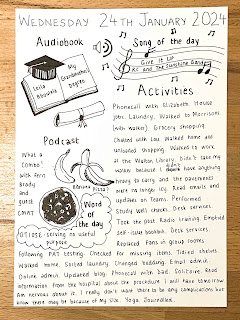 WEDNESDAY 24TH JANUARY 2024
Audiobook
Leila Aboulela
My Grandmother's Degree
Song of the day
Give It Up
KC and The Sunshine Band
Activities
Phonecall with Elizabeth. House
jobs. Laundry. Walked to Morrisons
(with walker). Grocery shopping.
Chatted with Lou. Walked home and
unloaded shopping. Walked to work
at the Walton Library. Didn't take my
walker because I didn't have anything
heavy to carry and the pavements
were no longer icy. Read emails and
updates on Teams. Performed
study well checks. Desk services.
Took the post. Radio training. Emptied
self-issue bookbin. Desk services.
Replaced Fans in group rooms
following PAT testing. Checked for missing items. Tidied shelves.
Walked home. Sorted laundry. Changed bedding. Email admin.
Online admin. Updated blog. Phonecall with Dad. Solitaire. Read
information from the hospital about the procedure I will have tomorrow.
Am nervous about it. I really don't want there to be any complications but
know there may be because of my size. Yoga. Journalled.
Podcast
What a
Combo
with Fern
Brady
and
guest
CMAT
Banana
Pizza?
Word of
the day
OTIOSE: serving no useful
purpose